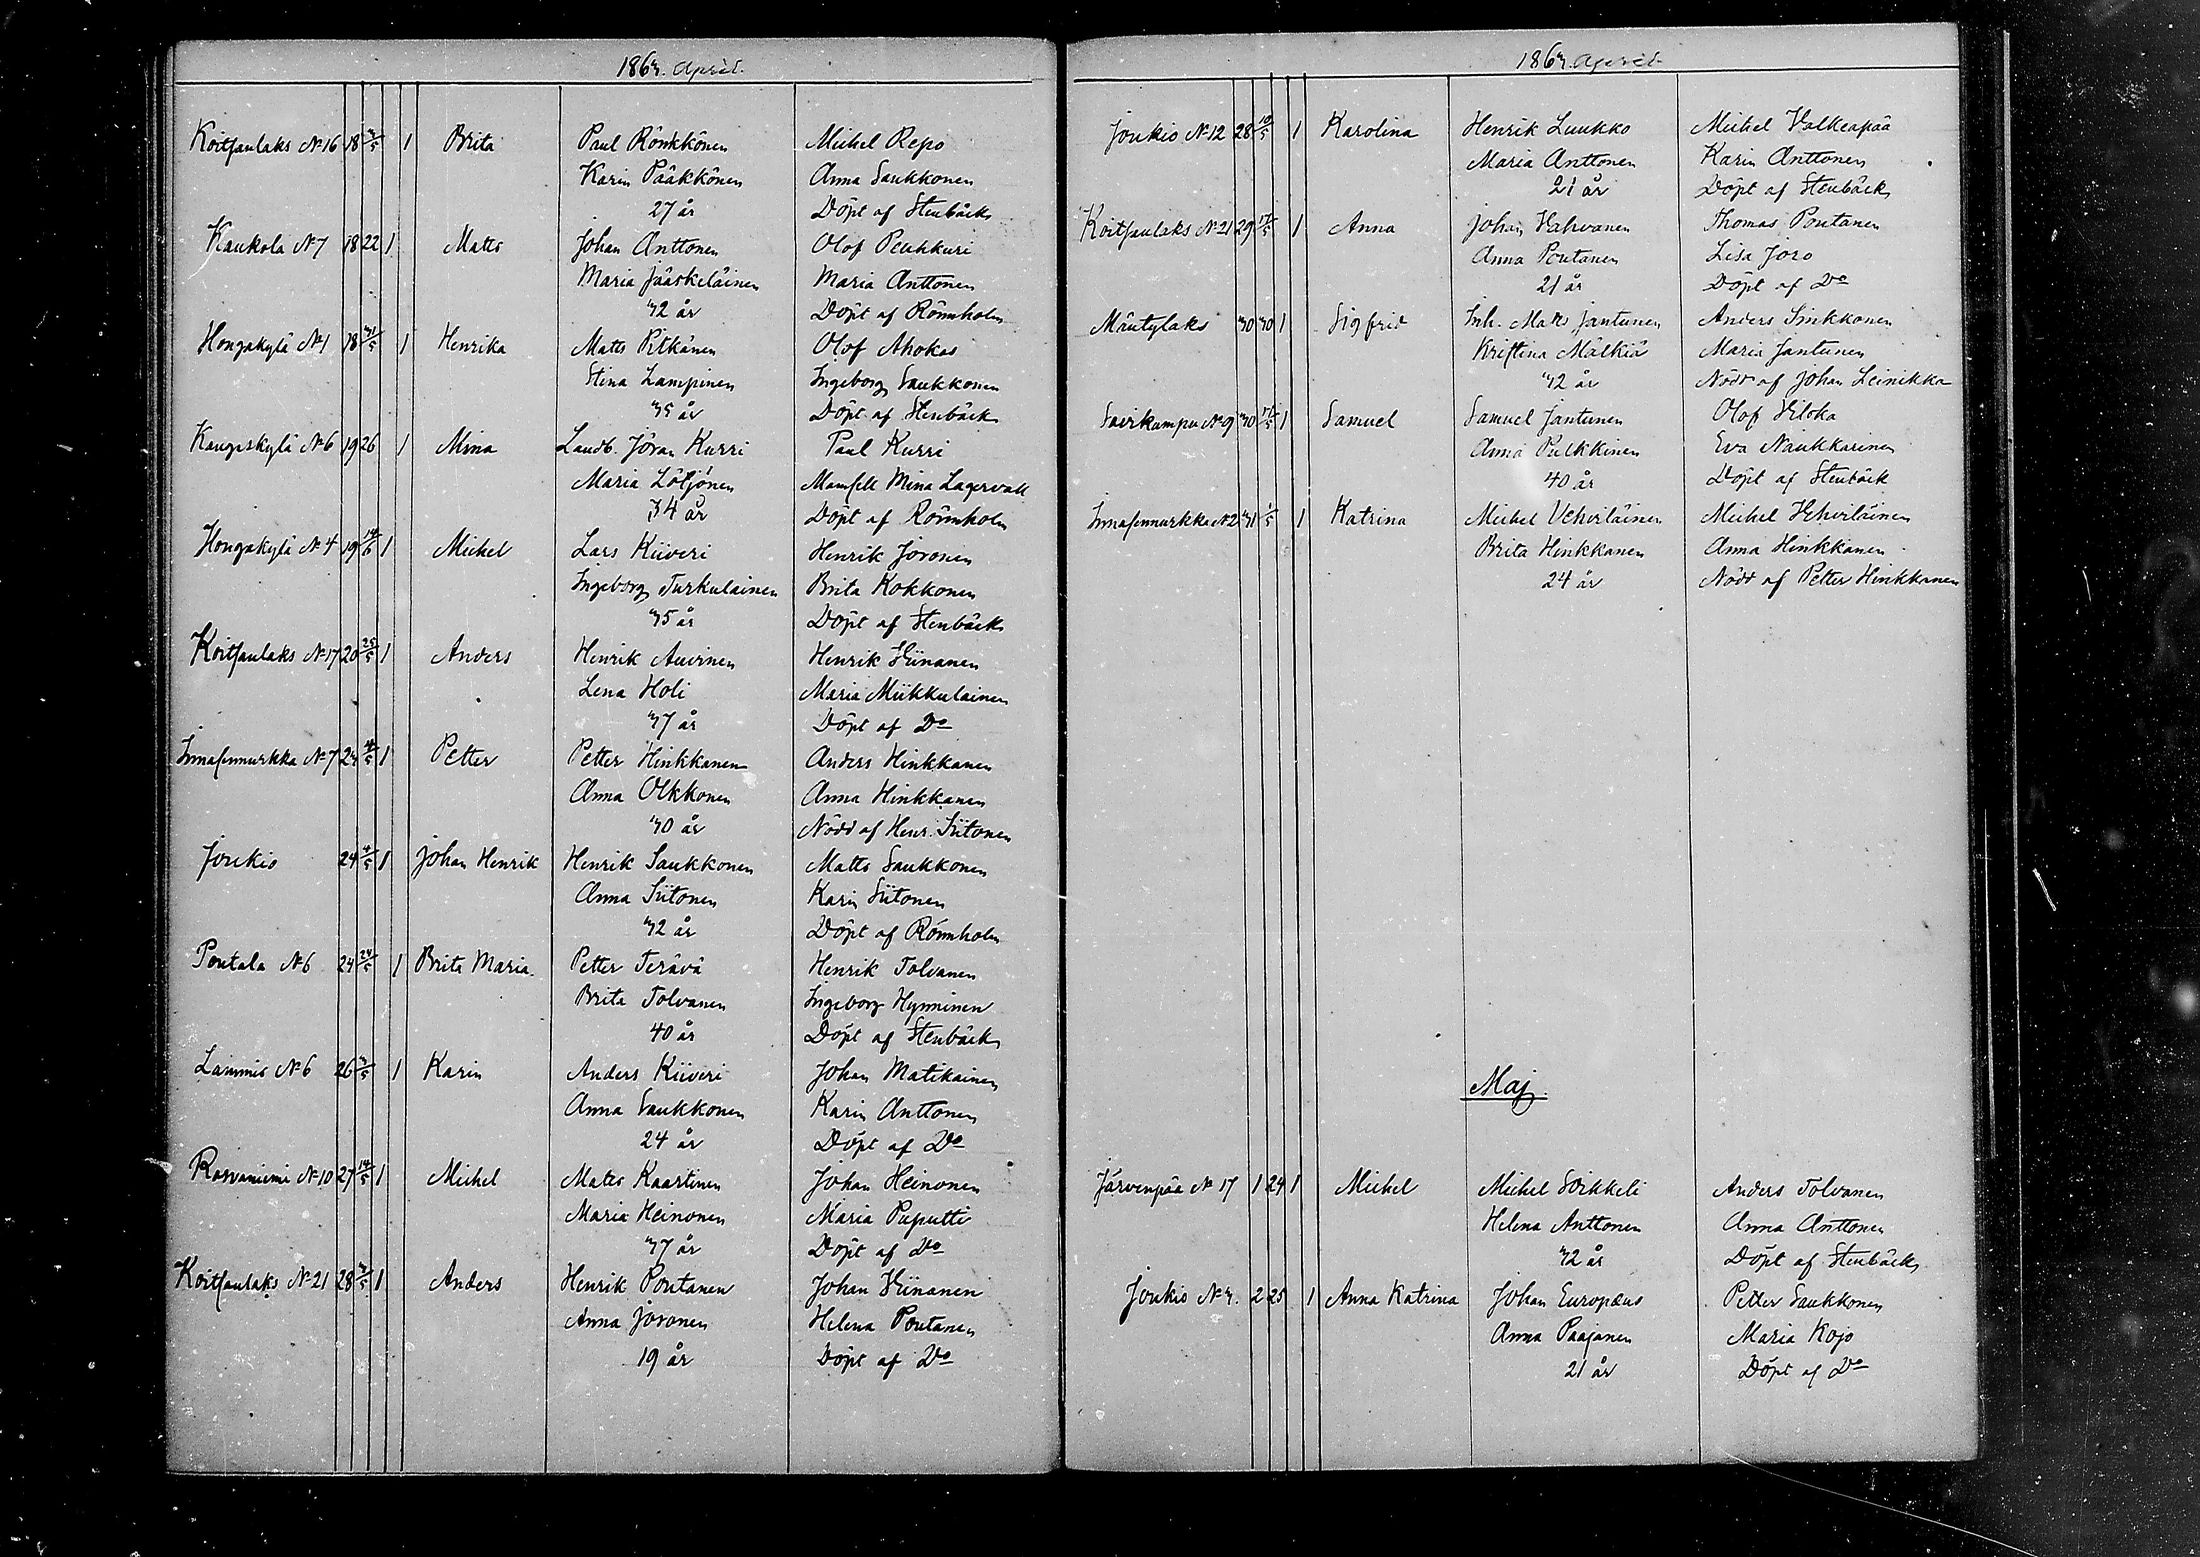 1863. April.
Koitsanlaks No 16 18 3/5 1 Brita Paul Rönkkönen Michel Repo
Karin Pääkkönen Anna Saukkonen
27 år Döpt af Stenbäck
Kaukola No 7 18 22 1 Matts Johan Anttonen Olof Peuhkuri
Maria Jääskeläinen Maria Anttonen
32 år Döpt af Rönnholm
Hongakylä No 1 18 31/5 1 Henrika Matts Pitkänen Olof Ahokas
Stina Lampinen Ingeborg Saukkonen
35 år Döpt af Stenbäck
Kangaskylä No 6 19 26 1 Mina Landb. Jöran Kurri Paul Kurri
Maria Lötjönen Mamsell Mina Lagervall
34 år Döpt af Rönnholm
Hongakylä No 4 19 14/6 1 Michel Lars Kiiveri Henrik Joronen
Ingeborg Turkulainen Brita Kokkonen
35 år Döpt af Stenbäck
Koitsanlaks No 17 20 25/5 1 Anders Henrik Auvinen Henrik Viinanen
Lena Holi Maria Miikkulainen
37 år Döpt af Do
Inmasennurkka No 7 24 4/5 1 Petter Petter Hinkkanen Anders Hinkkanen
Anna Olkkonen Anna Hinkkanen
30 år Nödd af Henr. Siitonen
Joukio 24 4/5 1 Johan Henrik Henrik Saukkonen Matts Saukkonen
Anna Siitonen Karin Siitonen
32 år Döpt af Rönnholm
Poutala No 6 24 24/5 1 Brita Maria Petter Terävä Henrik Tolvanen
Brita Tolvanen Ingeborg Hynninen
40 år Döpt af Stenbäck
Lammis No 6 26 3/5 1 Karin Anders Kiiveri Johan Matikainen
Anna Saukkonen Karin Anttonen
24 år Döpt af Do
Rasvaniemi No 10 27 14/5 1 Michel Matts Kaartinen Johan Heinonen
Maria Heinonen Maria Puputti
37 år Döpt af Do
Koitsanlaks No 21 28 3/5 1 Anders Henrik Poutanen Johan Viinanen
Anna Joronen Helena Poutanen
19 år Döpt af Do
1863. April.
Joukio No 12 28 10/5 1 Karolina Henrik Luukko Michel Valkeapää
Maria Anttonen Karin Anttonen
21 år Döpt af Stenbäck
Koitsanlaks No 21 29 17/5 1 Anna Johan Vahvanen Thomas Poutanen
Anna Poutanen Lisa Joro
21 år Döpt af Do
Mäntylaks 30 30 1 Sigfrid Inh. Matts Jantunen Anders Sinkkonen
Kristina Mälkiä Maria Jantunen
32 år Nödd af Johan Leinikka
Savikumpu No 9 30 17/5 1 Samuel Samuel Jantunen Olof Viloka
Anna Pulkkinen Eva Naukkarinen
40 år Döpt af Stenbäck
Inmasennurkka No 2 31 1/5 1 Katrina Michel Vehviläinen Michel Vehviläinen
Brita Hinkkanen Anna Hinkkanen
24 år Nödd af Petter Hinkkanen
Maj.
Järvenpää No 17 1 24 1 Michel Michel Soikkeli Anders Tolvanen
Helena Anttonen Anna Anttonen
32 år Döpt af Stenbäck
Joukio No 3. 2 25 1 Anna Katrina Johan Europæus Petter Saukkonen
Anna Paajanen Maria Kojo
21 år Döpt af Do